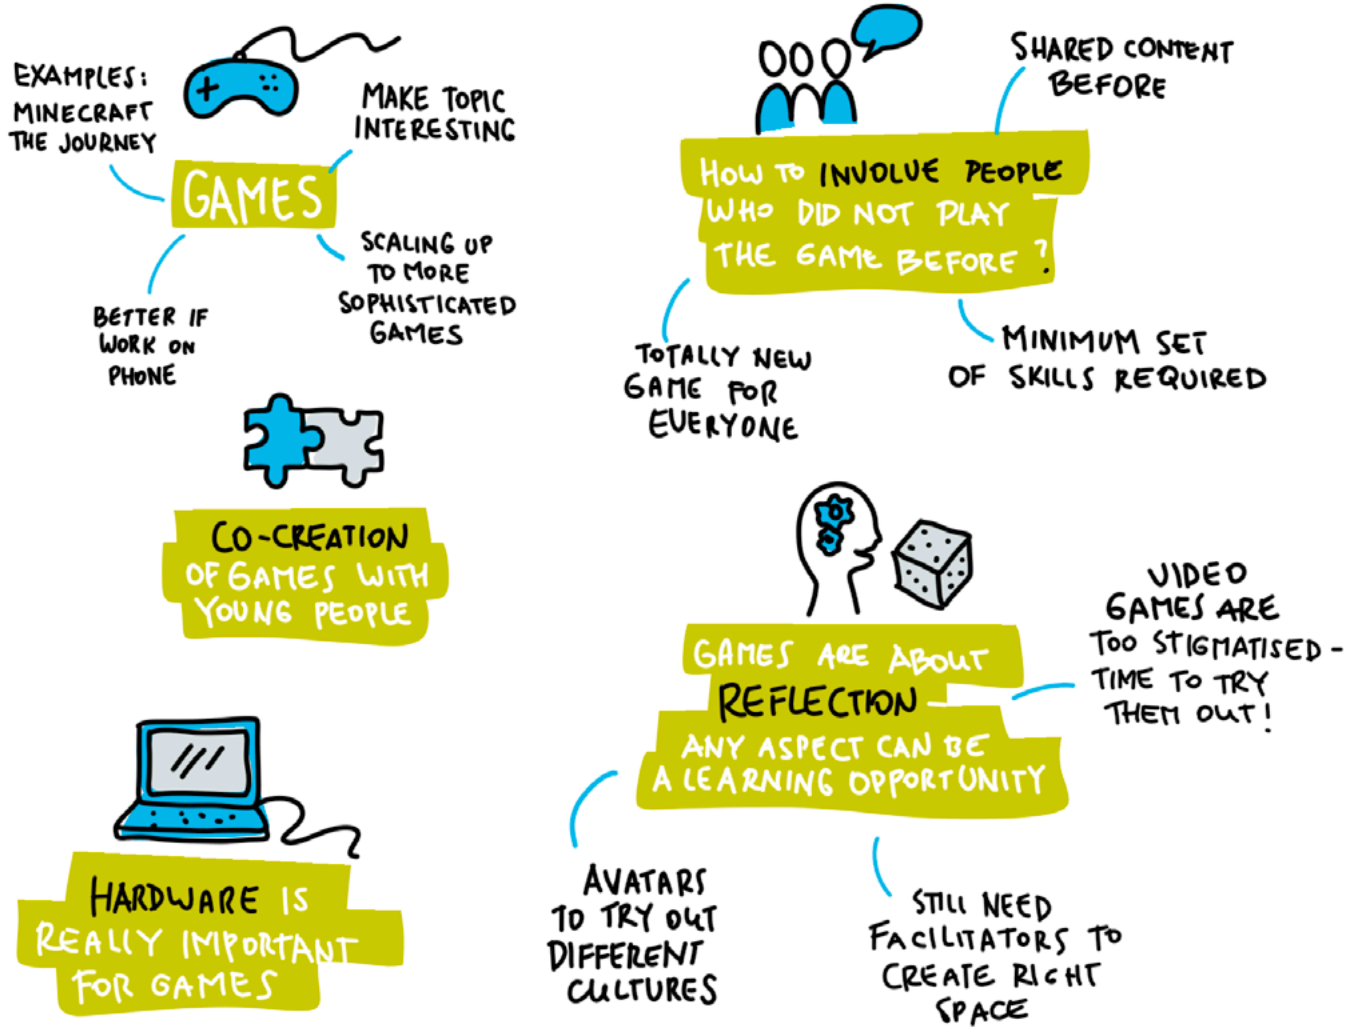 EXAMPLES:
MINECRAFT
THE JOURNEY
MAKE TOPIC
INTERESTING
GAMES
SCALING UP
TO MORE
SOPHISTICATED
GAMES
BETTER IF
WORK ON
PHONE
CO-CREATION
OF GAMES WITH
YOUNG PEOPLE
HARDWARE IS
REALLY IMPORTANT
FOR GAMES
SHARED CONTENT
BEFORE
HOW TO INVOLVE PEOPLE
WHO DID NOT PLAY
THE GAME BEFORE?
TOTALLY NEW
GAME FOR
EVERYONE
MINIMUM SET
OF SKILLS REQUIRED
GAMES ARE ABOUT
REFLECTION
ANY ASPECT CAN BE
A LEARNING OPPORTUNITY
VIDEO
GAMES ARE
TOO STIGMATISED -
TIME TO TRY
THEM OUT!
AVATARS
TO TRY OUT
DIFFERENT
CULTURES
STILL NEED
FACILITATORS TO
CREATE RIGHT
SPACE